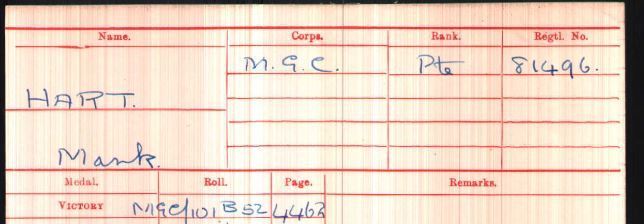 Name. Corps. Rank. Regtl. No.
M.G.C. Pte 81496.
HART.
Mark.
Medal. Roll. Page. Remarks.
VICTORY MGC/101B52 4463